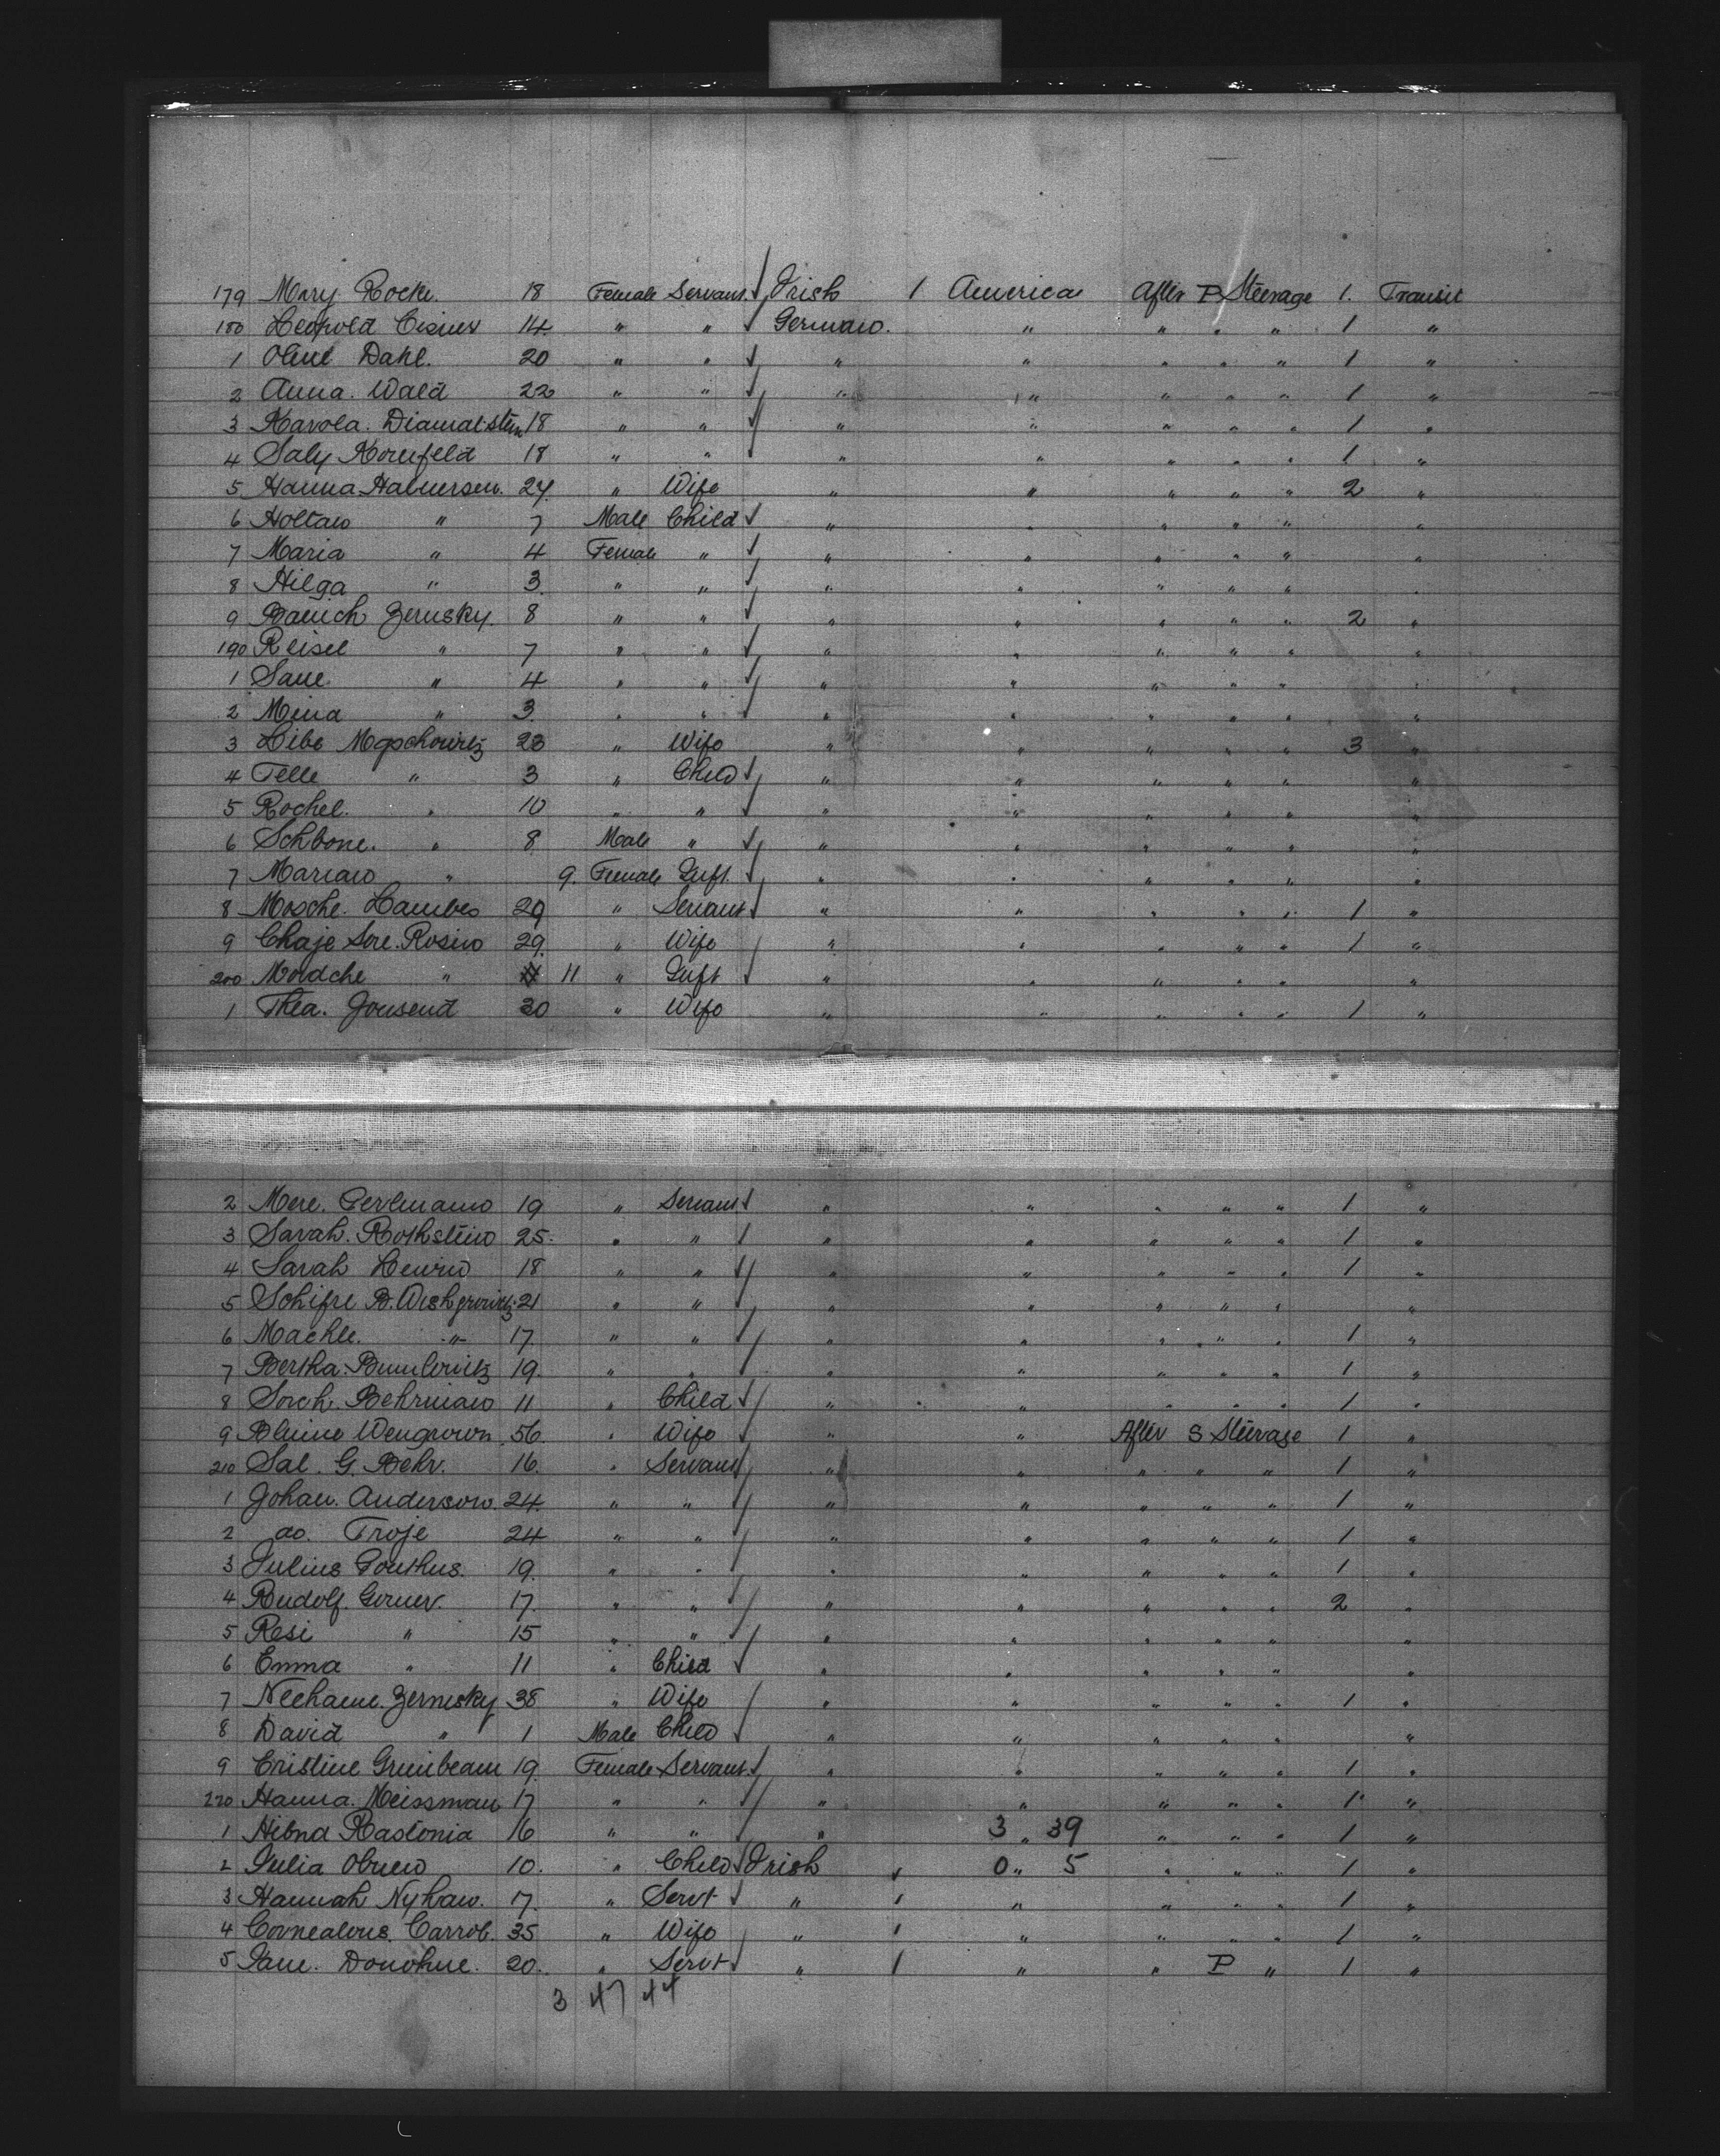 179 Mary Rocke. 18 Female Servant. Irish 1 America After P Steerage 1. Transit
180 Leopold 14 " " German. " " " " 1 "
1 Oline Dahl. 20 " " " " " " " 1 "
2 Anna. Wald 22 " " " " " " " 1 "
3 Karola. Diamatstein 18 " " " " " " " 1 "
4 Saly Kornfeld 18 " " " " " " " 1 "
5 Hanna Halversen. 24. " Wife " " " " " 2 "
6 Holtan " 7 Male Child " " " " " "
7 Maria " 4 Female " " " " " " "
8 Hilga " 3. " " " " " " " "
9 Bauich Zernsky. 8 " " " " " " " 2 "
190 Reisel " 7 " " " " " " " "
1 Sane " 4 " " " " " " " "
2 Mina " 3. " " " " " " " "
3 Libe 23 " Wife " " " " " 3 "
4 Telle " 3 " Child " " " " " "
5 Rochel. " 10 " " " " " " " "
6 Schbone. " 8 Male " " " " " " "
7 Marian " 9. Female Inft. " " " " " "
8 Mosche. 29 " Servant " " " " " 1 "
9 Chaje Sore. Rosin 29. " Wife " " " " " 1 "
200 Mordche " 11 " Inft " " " " " "
1 Thea. Jonsend 30 " Wife " " " " " 1 "
2 Mere. Perlmann 19 " Servant " " " " " 1 "
3 Sarah. Rothstein 25. " " " " " " " 1 "
4 Sarah Lewin 18 " " " " " " " 1 "
5 Schifre B. 21 " " " " " " " "
6 Machle. " 17. " " " " " " " 1 "
7 Bertha. 19. " " " " " " " 1 "
8 Soreh. Behrman 11 " Child " " " " " 1 "
9 Wengrown. 56. " Wife " " After S Steerage 1 "
210 Sal. G. Behr. 16. " Servant " " " " " 1 "
1 Johan. Anderson. 24. " " " " " " " 1 "
2 do. Troje 24 " " " " " " " 1 "
3 Julius 19. " " " " " " " 1 "
4 Rudolf. Gerner. 17. " " " " " " " 2 "
5 Resi " 15 " " " " " " " "
6 Emma " 11 " Child " " " " " "
7 Nechame. Zernesky 38 " Wife " " " " " 1 "
8 David " 1 Male Child " " " " " "
9 Cristine Grunbeam 19. Female Servant. " " " " " 1 "
220 Hanna. Meissman 17 " " " " " " " 1 "
1 Rastonia 16 " " " 3 " 39 " " " 1 "
2 Julia 10. " Child Irish 0 " 5 " " " 1 "
3 Hannah Nyhan. 17. " Servt " 1 " " " " 1 "
4 Cornealous. Carrol. 35 " Wife " 1 " " " " 1 "
5 Jane. Donohue. 20. " Servt " 1 " " P " 1 "
3 47 44